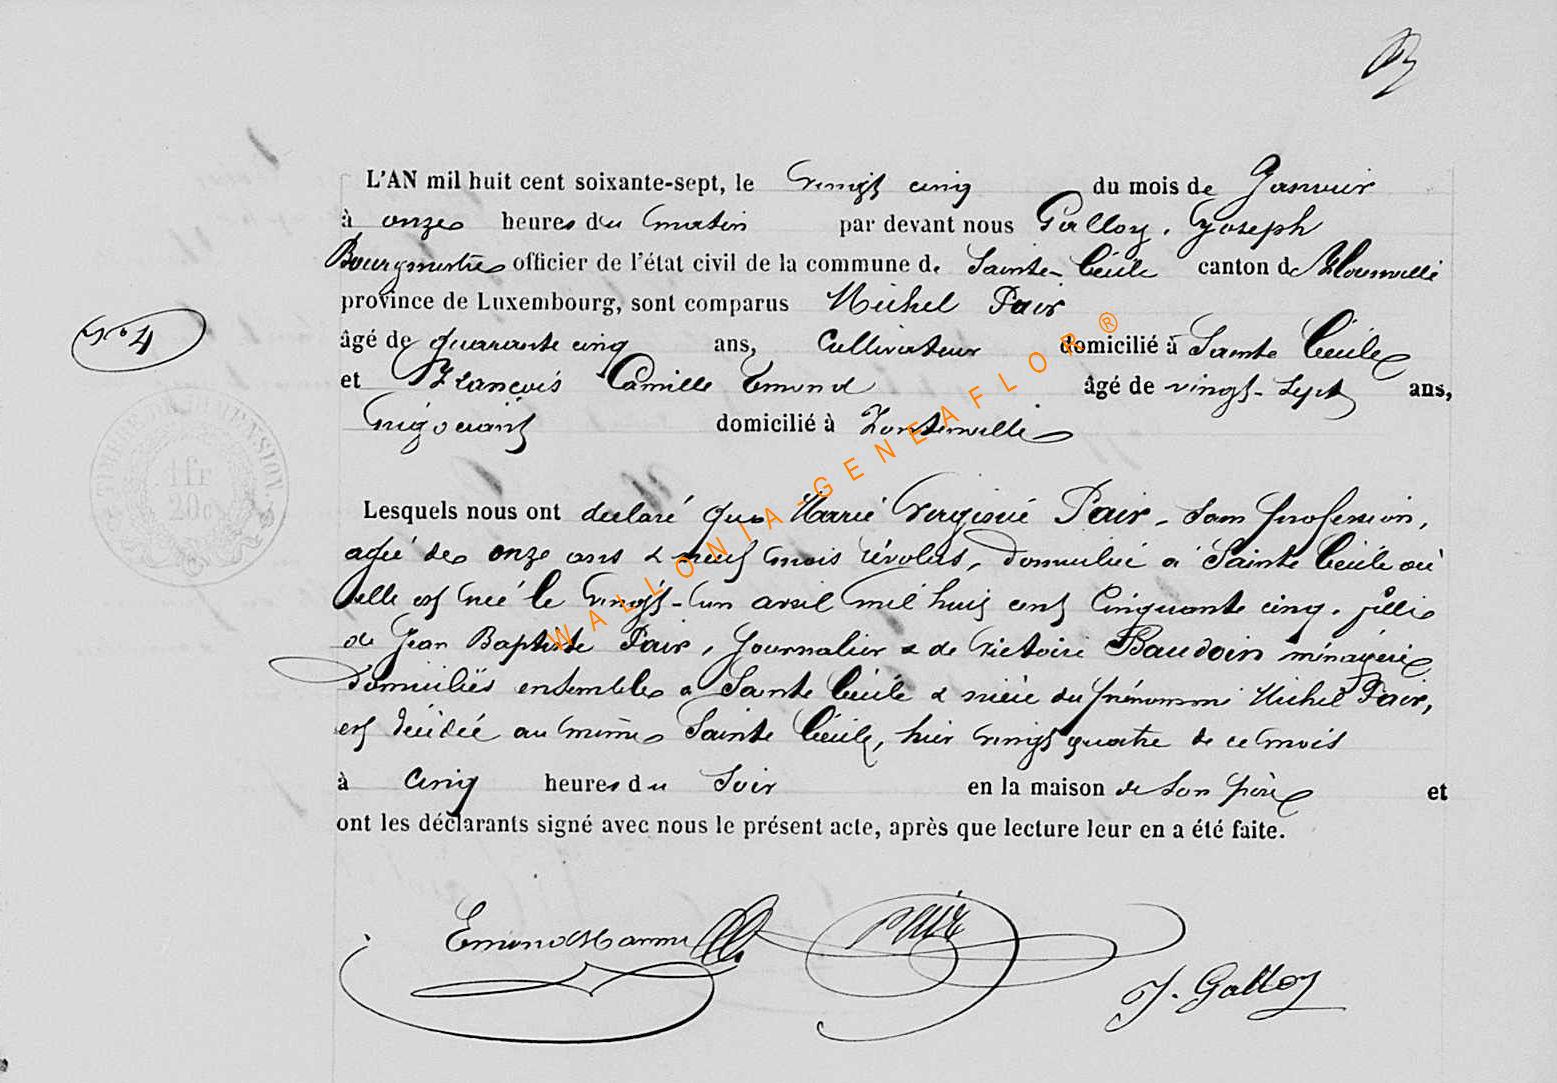 L'AN mil huit cent soixante-sept, le vingt cinq du mois de Janvier
à onze heures du matin par devant nous Galloy, Joseph
Bourgmestre officier de l'état civil de la commune de Sainte-Cécile canton de Florenville
province de Luxembourg, sont comparus Michel Pair
N° 4
âgé de quarante cinq ans, Cultivateur domicilié à Sainte Cécile
et François Camille Emond âgé de vingt-sept ans,
négociant domicilié à Fontenoille
TIMBRE DE DIMENSION.
1 fr
20 c
Lesquels nous ont declaré que Marie Virginie Pair, sans profession,
agée de onze ans & neuf mois révolus, domiciliée à Sainte Cécile où
elle est née le vingt-un avril mil huit cent cinquante cinq, fille
de Jean Baptiste Pair, journalier & de Victoire Baudoin ménagère
domiciliés ensemble à Sainte Cécile & nièce du prénommé Michel Pair,
est décédée au même Sainte Cécile, hier vingt quatre de ce mois
à cinq heures du soir en la maison de son père et
ont les déclarants signé avec nous le présent acte, après que lecture leur en a été faite.
WALLONIA-GENEAFLOR®
Emond PAIR
J. Galloy